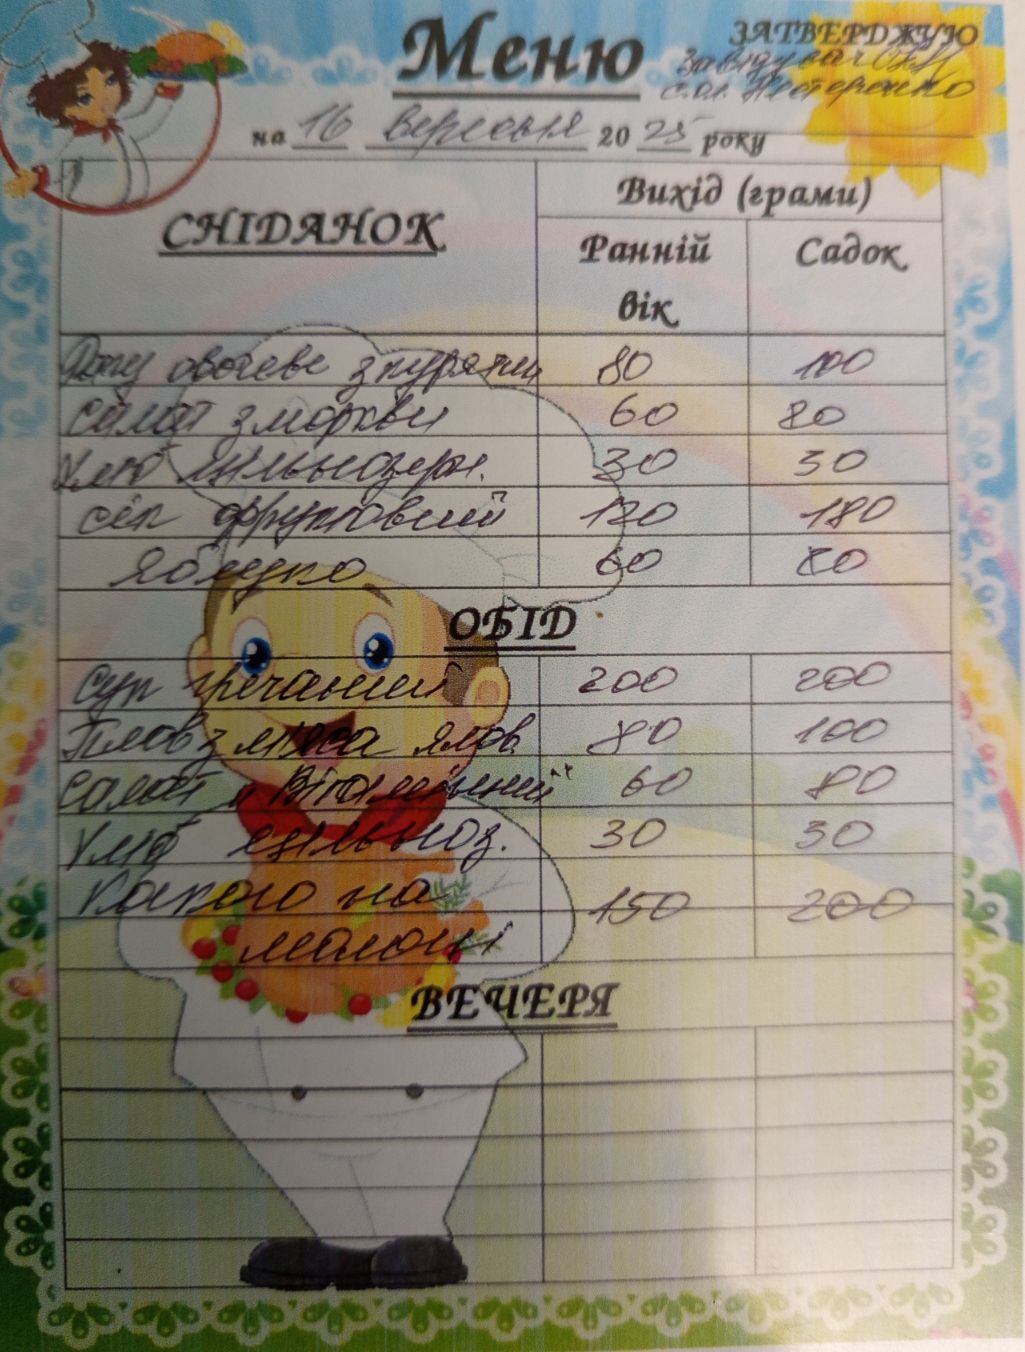 Меню
ЗАТВЕРДЖУЮ
Завідувач
Нестеренко
на 16 вересня 2025 року
СНІДАНОК
Вихід (грами)
Ранній вік
Садок
Рагу овочеве з курятини 80 100
Салат з моркви 60 80
Хліб цільнозерн. 30 50
Сік фруктовий 120 180
Яблуко 60 80
ОБІД
Суп гречаний 200 200
Плов з мяса ялов. 80 100
Салат "Вітамінний" 60 80
Хліб цільноз. 30 50
Какао на 150 200
молоці
ВЕЧЕРЯ